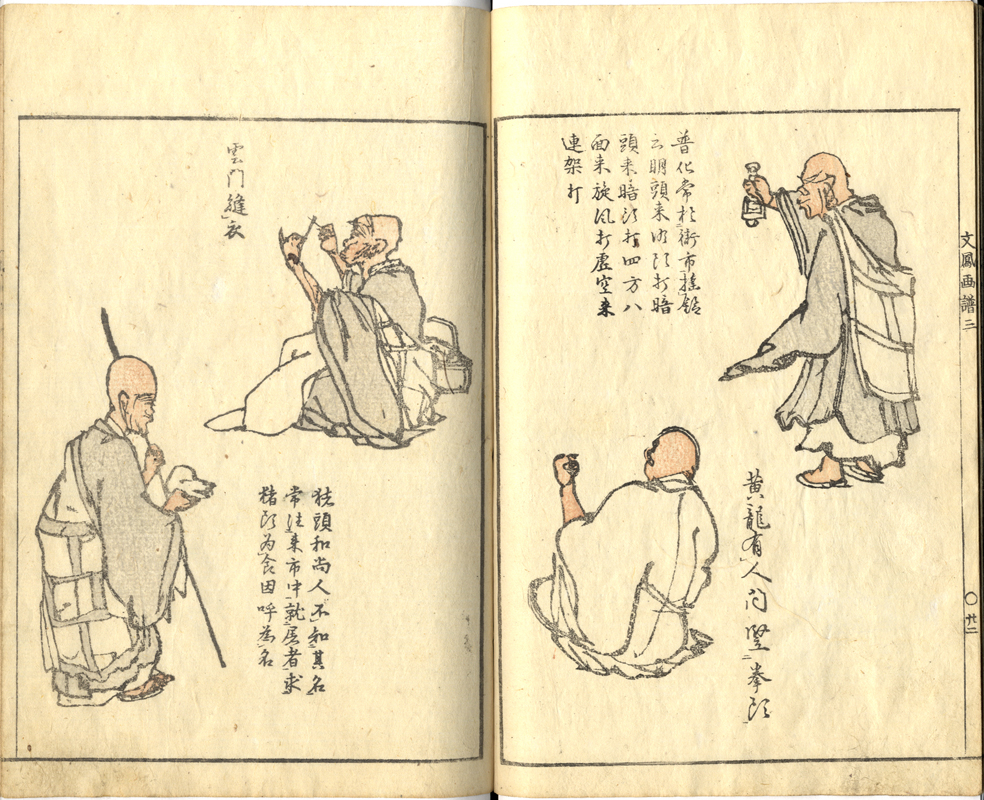 文鳳画譜三
〇 廿二
普化常於街市揺鈴
云明頭来明頭打暗
頭来暗頭打四方八
面来旋风打虚空来
連架打
黄龍有人问竪拳頭
雲门縫衣
猪頭和尚人不知其名
常往来市中就屠者求
猪頭為食因呼為名